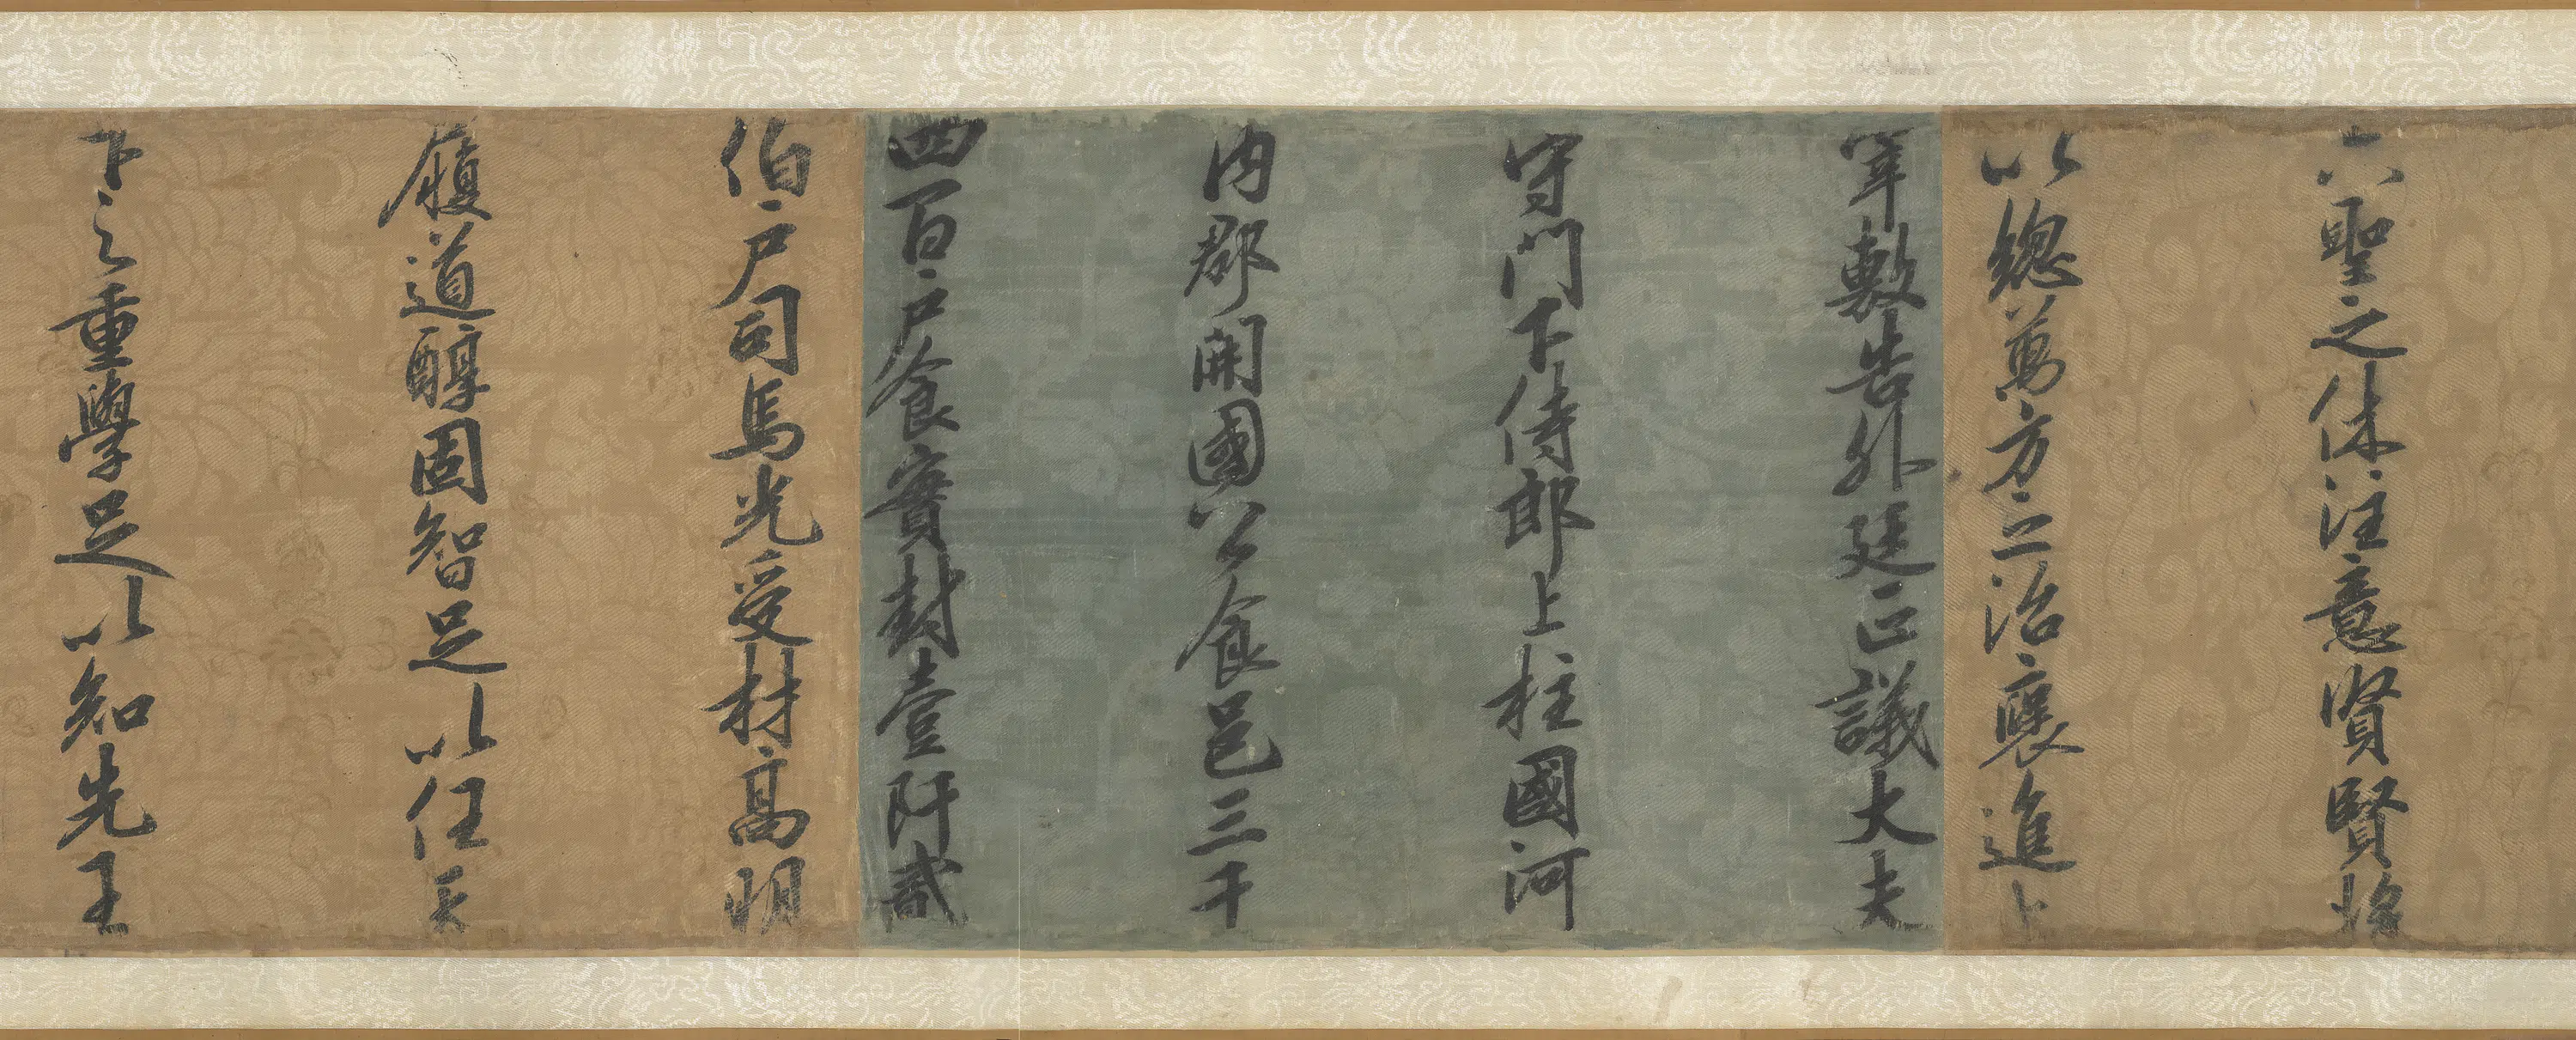 六聖之休注意賢賢將
以總萬方之治襃進上
宰敷告外廷正議大夫
守門下侍郎上柱國河
內郡開國公食邑三千
四百戶食實封壹阡貳
伯戶司馬光受材高明
履道醇固智足以任天
下之重學足以知先王